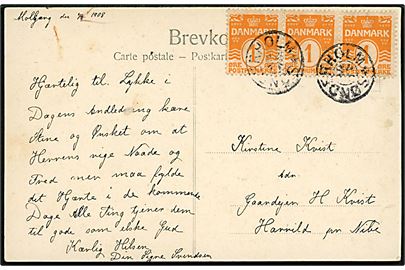 Brevko
Carte postale - Postkar
DANMARK DANMARK DANMARK
1 1 1
Hjertelig til Lykke i
Dagens Andledning kære
Stine og Ønsket om at
Herrens rige Naade og
Fred over maa fylde
dit Hjerte i de kommende
Dage Alle Ting tjener dem
til gode som elske Gud
Kærlig Hilsen
Din Signe Svendsen
Kirstine Kvist
adr.
Gaardejer H Kvist
Harrild pr Nibe